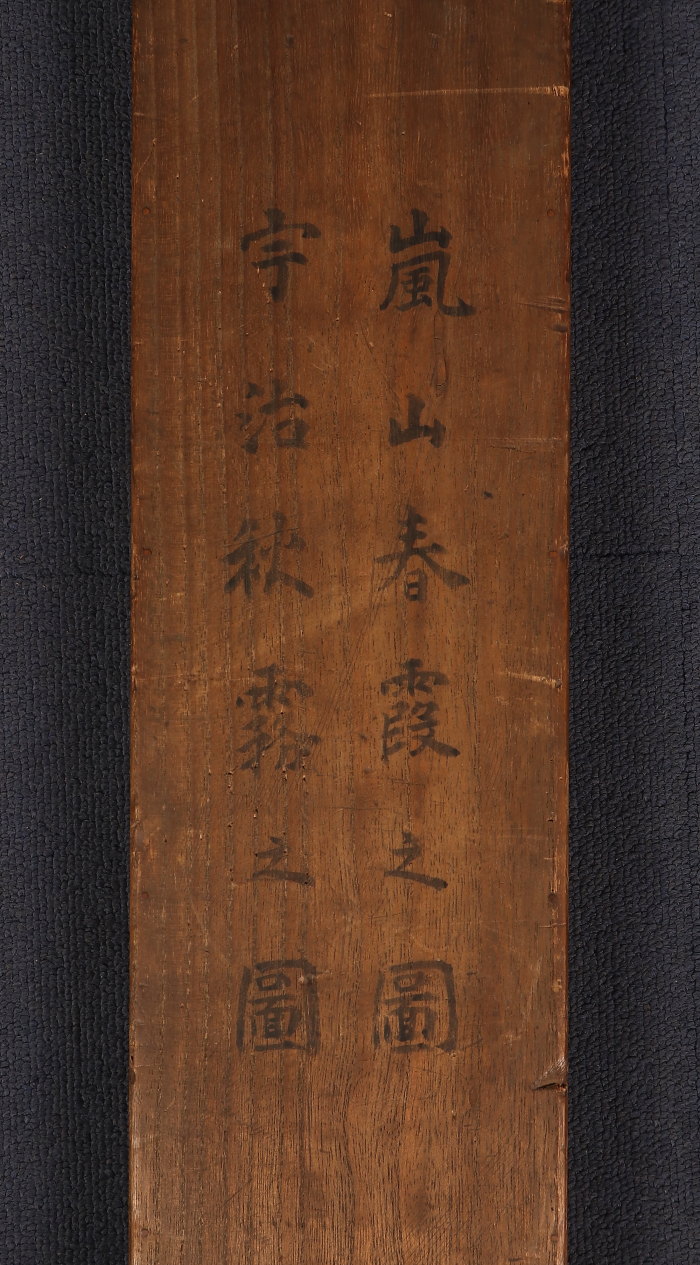 嵐山春霞之圖
宇治秋霧之圖